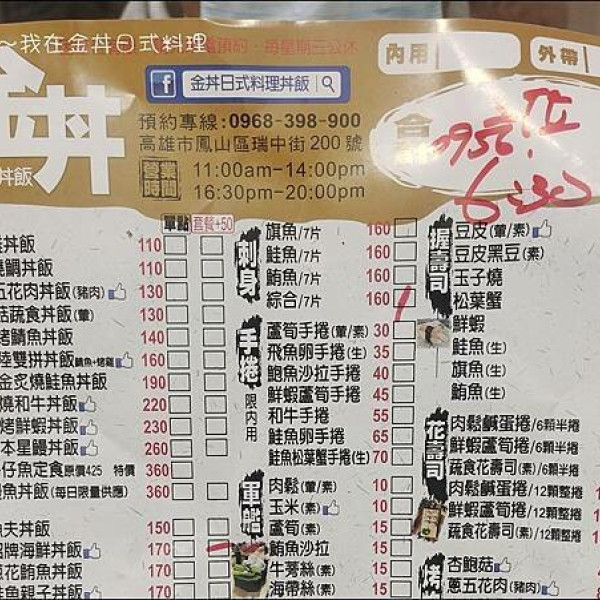 ～我在金丼日式料理
預約，每星期三公休
內用
外帶
金丼日式料理丼飯
丼飯
預約專線:0968-398-900
高雄市鳳山區瑞中街200號
營業時間
11:00am-14:00pm
16:30pm-20:00pm
0956
6:30
單點 套餐+50
丼飯 110
鯛丼飯 110
五花肉丼飯(豬肉) 130
菇蔬食丼飯(葷) 130
烤鯖魚丼飯 140
陸雙拼丼飯鯖魚+烤雞 160
金炙燒鮭魚丼飯 190
燒和牛丼飯 220
烤鮮蝦丼飯 230
本星鰻丼飯 260
仔魚定食原價425 特價 360
魚丼飯(每日限量供應) 360
夫丼飯 150
招牌海鮮丼飯 170
蔥花鮪魚丼飯 170
鮭魚親子丼飯
刺身
旗魚/7片 160
鮭魚/7片 160
鮪魚/7片 160
綜合/7片 160
手捲 限內用
蘆筍手捲(葷/素) 30
飛魚卵手捲(生) 35
鮑魚沙拉手捲 40
鮮蝦蘆筍手捲 45
和牛手捲 55
鮭魚卵手捲 65
鮭魚松葉蟹手捲(生) 70
軍艦
肉鬆(葷/素) 10
玉米(素) 10
蘆筍(素) 15
鮪魚沙拉 15
牛蒡絲(素) 15
海帶絲(素) 15
握壽司
豆皮(葷/素)
豆皮黑豆(素)
玉子燒
松葉蟹
鮮蝦
鮭魚(生)
旗魚(生)
鮪魚(生)
花壽司
肉鬆鹹蛋捲/6顆半捲
鮮蝦蘆筍捲/6顆半捲
蔬食花壽司(素)/6顆半捲
肉鬆鹹蛋捲/12顆整捲
鮮蝦蘆筍捲/12顆整捲
蔬食花壽司(素)/12顆整捲
烤
杏鮑菇
蔥五花肉(豬肉)